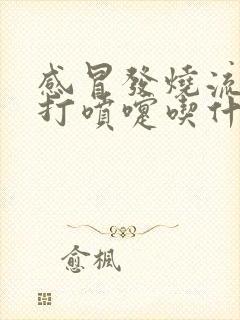 感冒發燒流
打噴嚏喫什
愈楓